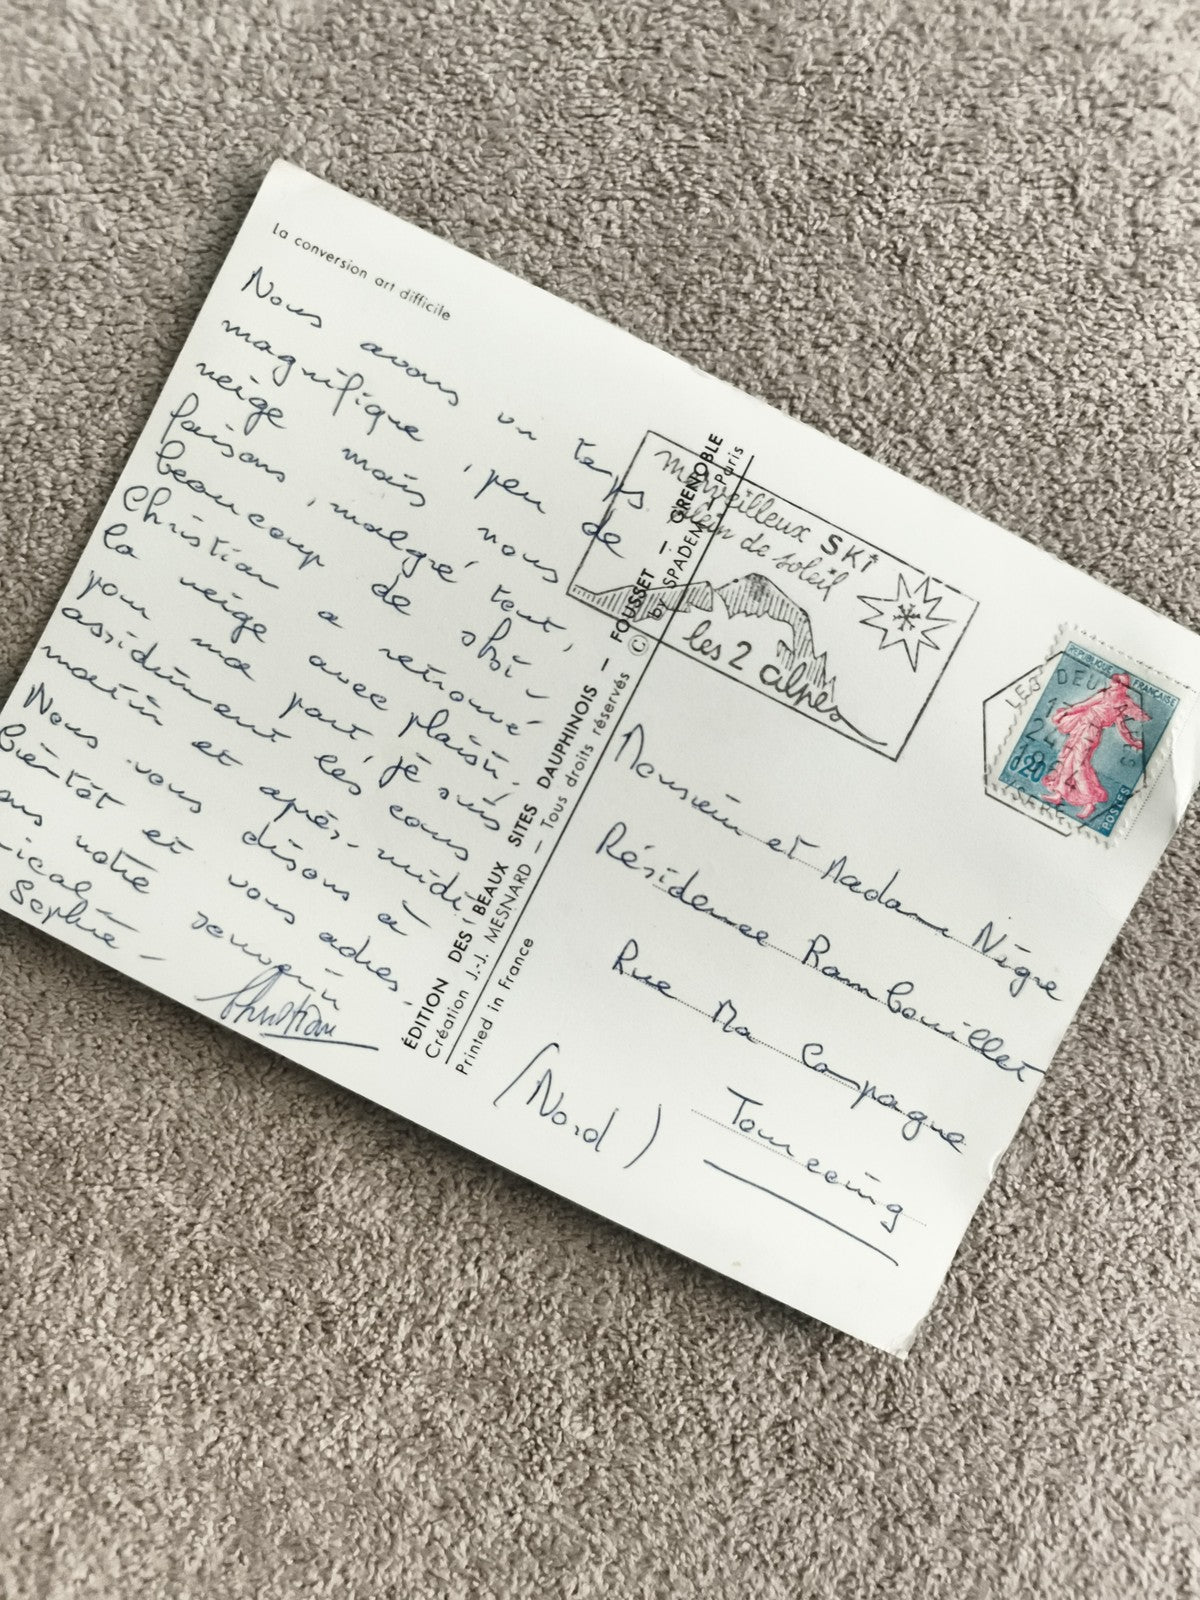 La conversion art difficile
Nous avons un temps
magnifique, peu de
neige mais nous
faisons, malgré tout,
beaucoup de ski -
Christian a retrouvé
la neige avec plaisir.
pour ma part, je suis
assidûment les cours
matin et après-midi.
Nous vous disons à
bientôt et vous adres.
notre souvenir
ical -
Sophie - Christian
ÉDITION DES BEAUX SITES DAUPHINOIS - FOUSSET - GRENOBLE
Création J.-J. MESNARD - Tous droits réservés © by SPADEM Paris
Printed in France
merveilleux SKi
plein de soleil
les 2 alpes
REPUBLIQUE FRANÇAISE
0,20
POSTES
LES DEUX ALPES
24
1964
ISERE
Monsieur et Madame Nègre
Résidence Rambouillet
Rue Ma Campagne
Tourcoing
(Nord)